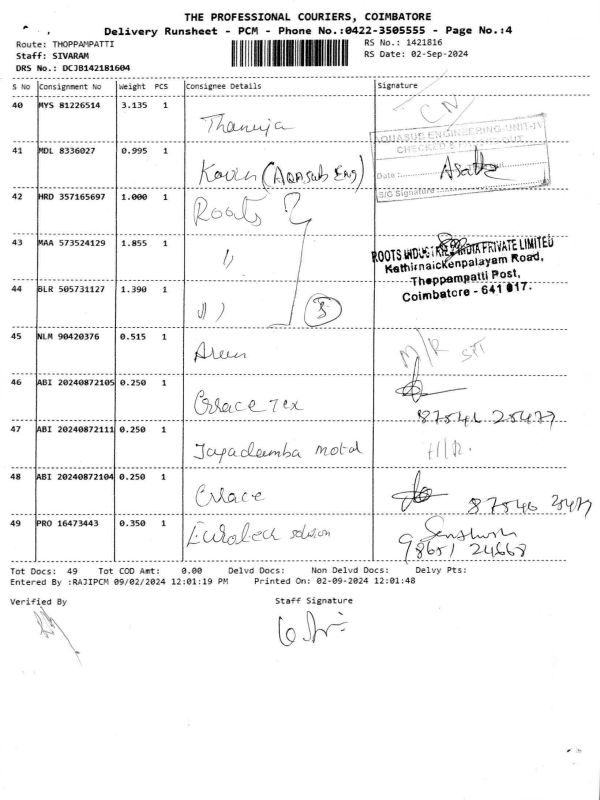 THE PROFESSIONAL COURIERS, COIMBATORE
Delivery Runsheet - PCM - Phone No.:0422-3505555 - Page No.:4
Route: THOPPAMPATTI
RS No.: 1421816
Staff: SIVARAM
RS Date: 02-Sep-2024
DRS No.: DCJB142181604
S No Consignment No Weight PCS Consignee Details Signature
40 MYS 81226514 3.135 1
Thanuja
CN
AQUASUB ENGINEERING-UNIT-IV
CHECKED &
Date :
S/G Signature
41 MDL 8336027 0.995 1
Kavin (Aqasub Eng)
42 HRD 357165697 1.000 1
Roots
43 MAA 573524129 1.855 1
"
ROOTS INDUSTRIES INDIA PRIVATE LIMITED
Kathirnaickenpalayam Road,
Thoppampatti Post,
Coimbatore - 641 017.
44 BLR 505731127 1.390 1
3
45 NLM 90420376 0.515 1
46 ABI 20240872105 0.250 1
Tex
47 ABI 20240872111 0.250 1
48 ABI 20240872104 0.250 1
49 PRO 16473443 0.350 1
98651 24668
Tot Docs: 49 Tot COD Amt: 0.00 Delvd Docs: Non Delvd Docs: Delvy Pts:
Entered By :RAJIPCM 09/02/2024 12:01:19 PM Printed On: 02-09-2024 12:01:48
Verified By Staff Signature